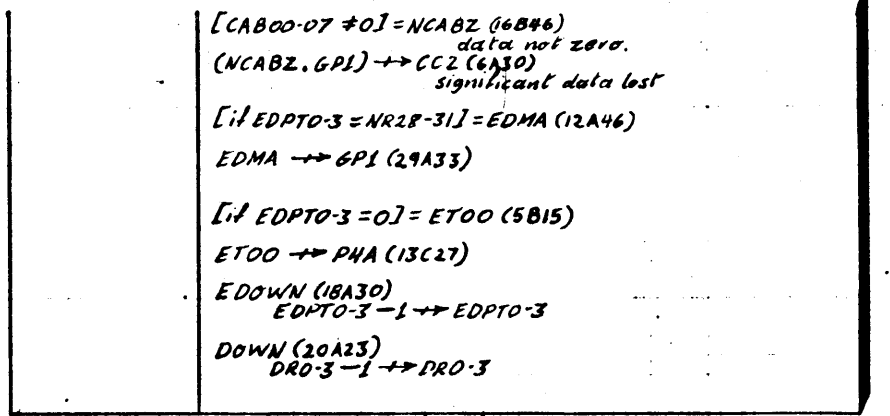 [CAB00-07 ≠0] = NCABZ (16B46)
data not zero.
(NCABZ.GP1) ↦ CC2 (6A30)
significant data lost
[if EDPT0-3 = NR28-31] = EDMA (12A46)
EDMA ↦ GP1 (29A33)
[if EDPT0-3 =0] = ET00 (5B15)
ET00 ↦ PHA (13C27)
EDOWN (18A30)
EDPT0-3 -1 ↦ EDPT0-3
DOWN (20A23)
DR0-3 -1 ↦ DR0-3